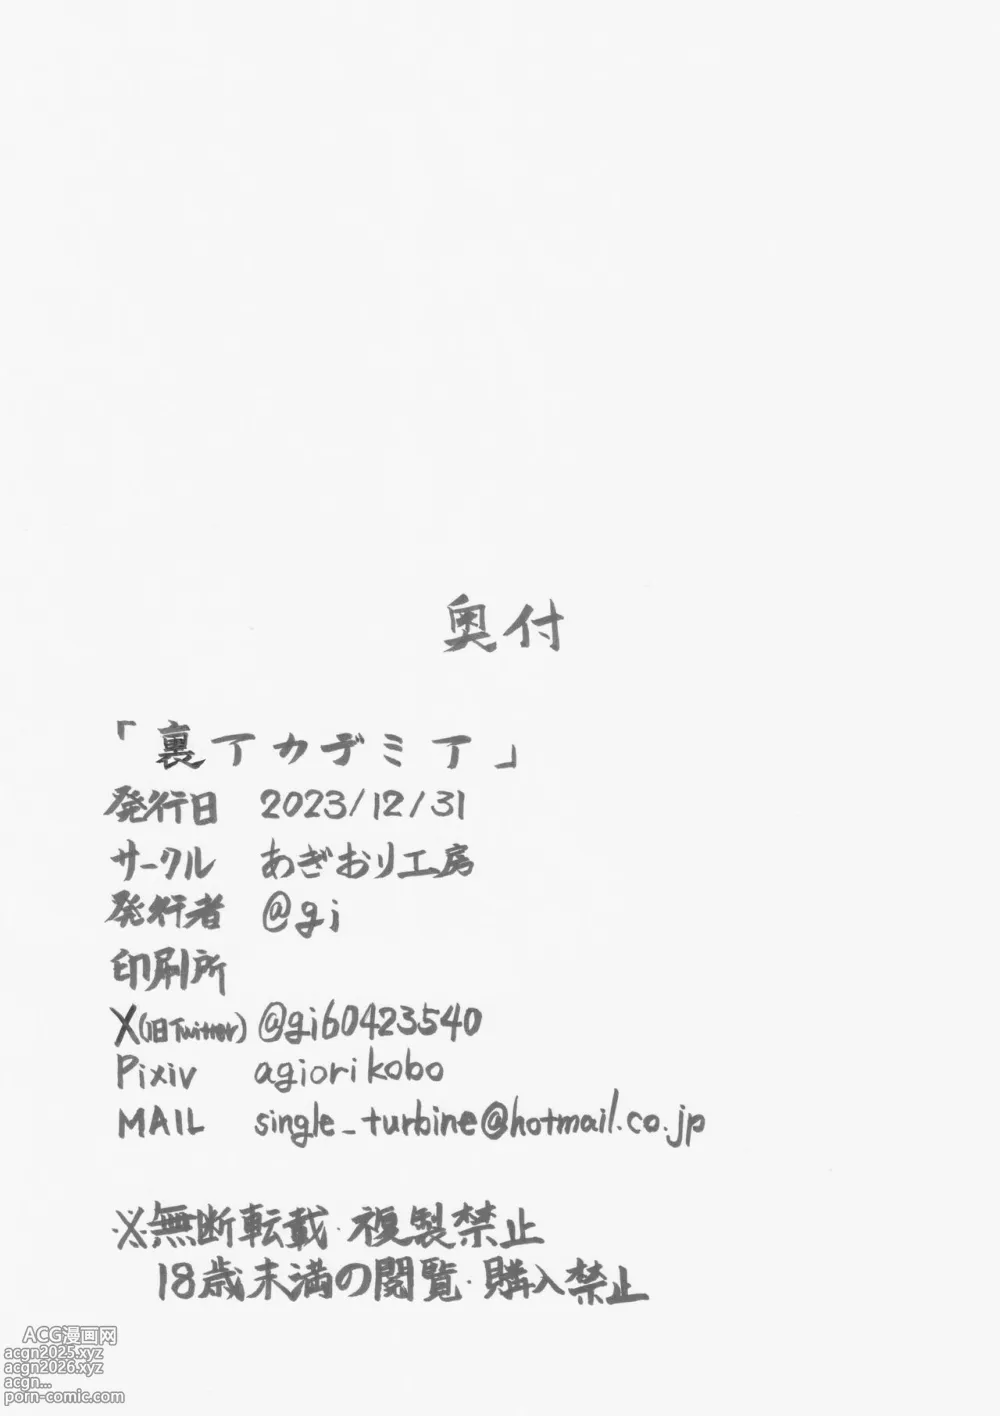 奥付
「裏アカデミア」
発行日 2023/12/31
サークル あぎおり工房
発行者 @gi
印刷所
X(旧Twitter) @gi60423540
Pixiv agiorikobo
MAIL single_turbine@hotmail.co.jp
※無断転載・複製禁止
18歳未満の閲覧・購入禁止
ACG漫画网
acgn2025.xyz
acgn2026.xyz
acgn...
porn-comic.com